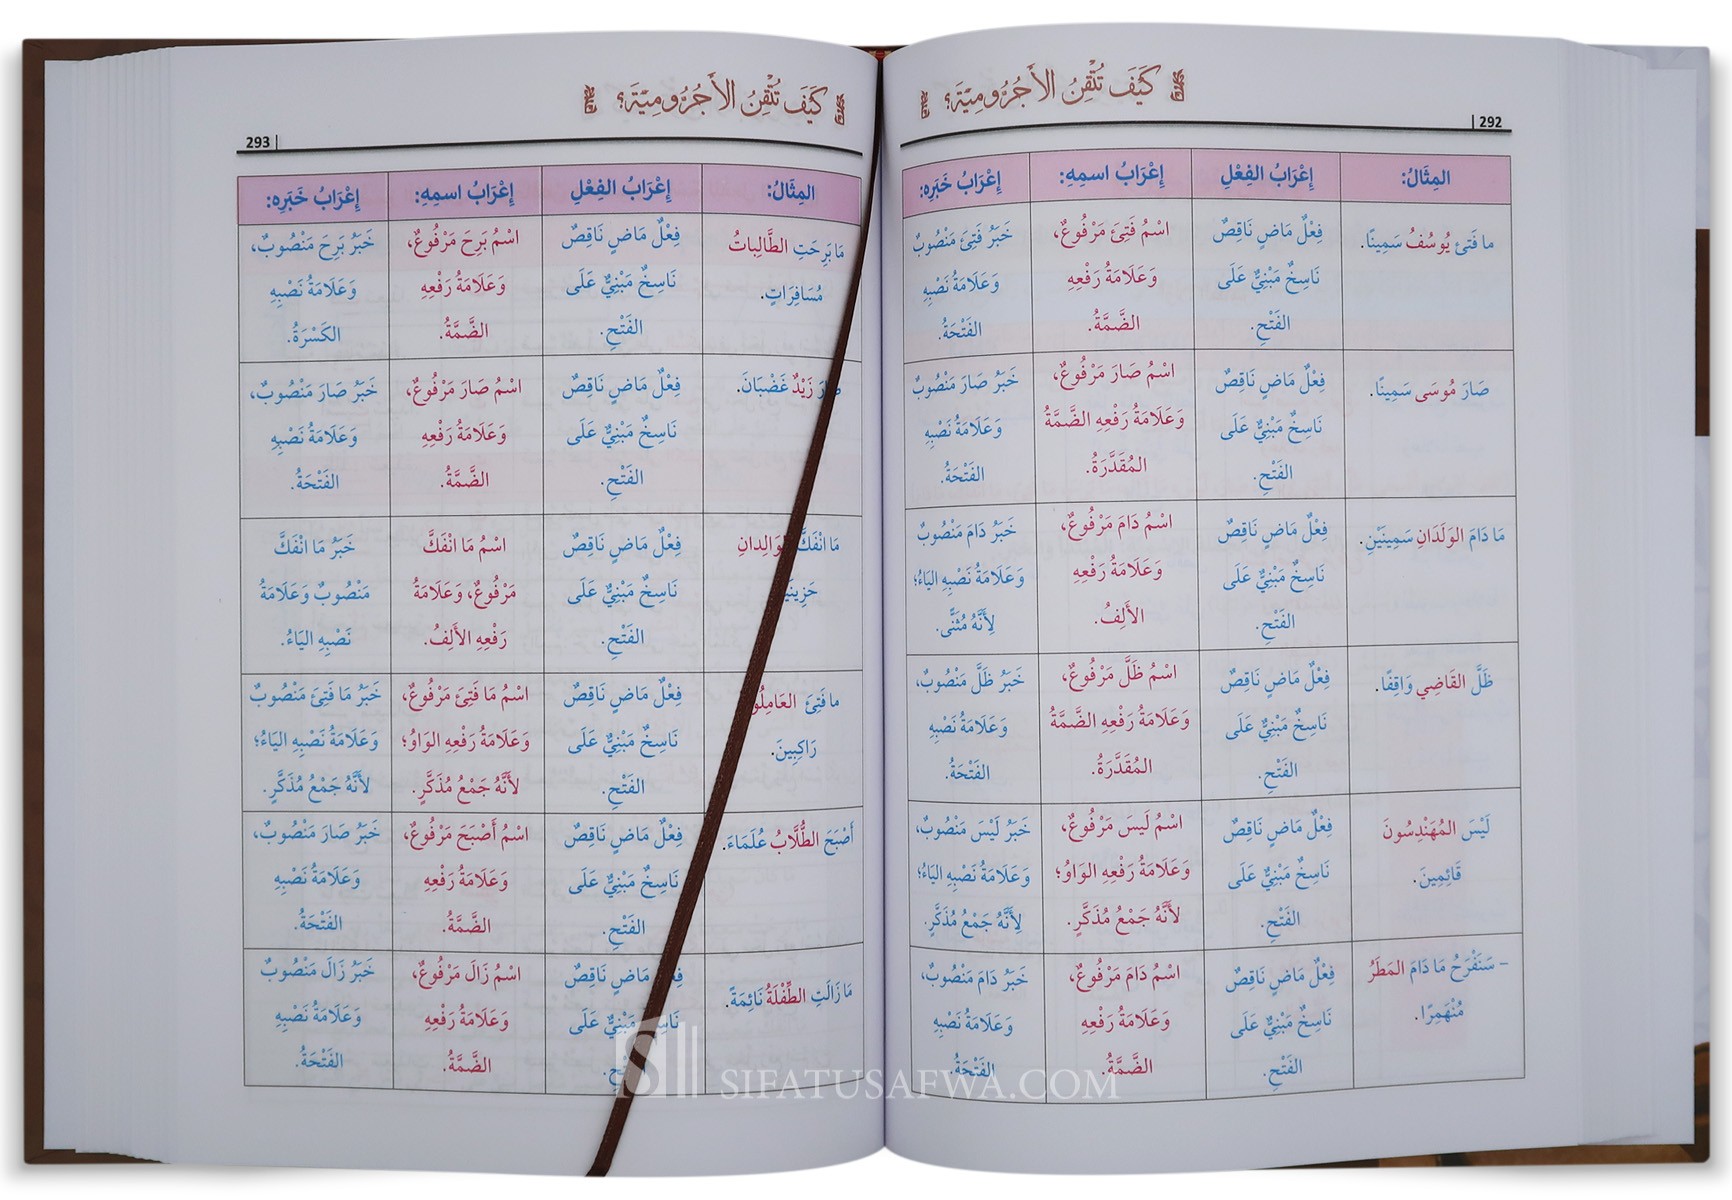 كَيْفَ تُتْقِنُ الأَجُرُّومِيَّةَ؟
292
المِثَالُ: إِعْرَابُ الفِعْلِ إِعْرَابُ اسمِهِ: إِعْرَابُ خَبَرِه:
ما فَتِئَ يُوسُفُ سَمِينًا. فِعْلٌ مَاضٍ نَاقِصٌ اسْمُ فَتِئَ مَرْفُوعٌ، خَبَرُ فَتِئَ مَنْصُوبٌ
نَاسِخٌ مَبْنِيٌّ عَلَى وَعَلَامَةُ رَفْعِهِ وَعَلَامَةُ نَصْبِهِ
الفَتْحِ. الضَّمَّةُ. الفَتْحَةُ.
صَارَ مُوسَى سَمِينًا. فِعْلٌ مَاضٍ نَاقِصٌ اسْمُ صَارَ مَرْفُوعٌ، خَبَرُ صَارَ مَنْصُوبٌ
نَاسِخٌ مَبْنِيٌّ عَلَى وَعَلَامَةُ رَفْعِهِ الضَّمَّةُ وَعَلَامَةُ نَصْبِهِ
الفَتْحِ. المُقَدَّرَةُ. الفَتْحَةُ.
مَا دَامَ الوَلَدَانِ سَمِينَيْنِ. فِعْلٌ مَاضٍ نَاقِصٌ اسْمُ دَامَ مَرْفُوعٌ، خَبَرُ دَامَ مَنْصُوبٌ
نَاسِخٌ مَبْنِيٌّ عَلَى وَعَلَامَةُ رَفْعِهِ وَعَلَامَةُ نَصْبِهِ اليَاءُ؛
الفَتْحِ. الأَلِفُ. لِأَنَّهُ مُثَنًّى.
ظَلَّ القَاضِي وَاقِفًا. فِعْلٌ مَاضٍ نَاقِصٌ اسْمُ ظَلَّ مَرْفُوعٌ، خَبَرُ ظَلَّ مَنْصُوبٌ،
نَاسِخٌ مَبْنِيٌّ عَلَى وَعَلَامَةُ رَفْعِهِ الضَّمَّةُ وَعَلَامَةُ نَصْبِهِ
الفَتْحِ. المُقَدَّرَةُ. الفَتْحَةُ.
لَيْسَ المُهَنْدِسُونَ فِعْلٌ مَاضٍ نَاقِصٌ اسْمُ لَيسَ مَرْفُوعٌ، خَبَرُ لَيْسَ مَنْصُوبٌ،
قَائِمِينَ. نَاسِخٌ مَبْنِيٌّ عَلَى وَعَلَامَةُ رَفْعِهِ الوَاوُ؛ وَعَلَامَةُ نَصْبِهِ اليَاءُ؛
الفَتْحِ. لأَنَّهُ جَمْعُ مُذَكَّرٍ. لِأَنَّهُ جَمْعُ مُذَكَّرٍ.
– سَنَفْرَحُ مَا دَامَ المَطَرُ فِعْلٌ مَاضٍ نَاقِصٌ اسْمُ دَامَ مَرْفُوعٌ، خَبَرُ دَامَ مَنْصُوبٌ،
مُنْهَمِرًا. نَاسِخٌ مَبْنِيٌّ عَلَى وَعَلَامَةُ رَفْعِهِ وَعَلَامَةُ نَصْبِهِ
الفَتْحِ. الضَّمَّةُ. الفَتْحَةُ.
كَيْفَ تُتْقِنُ الأَجُرُّومِيَّةَ؟
293
المِثَالُ: إِعْرَابُ الفِعْلِ إِعْرَابُ اسمِهِ: إِعْرَابُ خَبَرِه:
مَا بَرِحَتِ الطَّالِبَاتُ فِعْلٌ مَاضٍ نَاقِصٌ اسْمُ بَرِحَ مَرْفُوعٌ، خَبَرُ بَرِحَ مَنْصُوبٌ،
مُسَافِرَاتٍ. نَاسِخٌ مَبْنِيٌّ عَلَى وَعَلَامَةُ رَفْعِهِ وَعَلَامَةُ نَصْبِهِ
الفَتْحِ. الضَّمَّةُ. الكَسْرَةُ.
زَيْدٌ غَضْبَانَ. فِعْلٌ مَاضٍ نَاقِصٌ اسْمُ صَارَ مَرْفُوعٌ، خَبَرُ صَارَ مَنْصُوبٌ،
نَاسِخٌ مَبْنِيٌّ عَلَى وَعَلَامَةُ رَفْعِهِ وَعَلَامَةُ نَصْبِهِ
الفَتْحِ. الضَّمَّةُ. الفَتْحَةُ.
مَا انْفَكَّ فِعْلٌ مَاضٍ نَاقِصٌ اسْمُ مَا انْفَكَّ خَبَرُ مَا انْفَكَّ
نَاسِخٌ مَبْنِيٌّ عَلَى مَرْفُوعٌ، وَعَلَامَةُ مَنْصُوبٌ وَعَلَامَةُ
الفَتْحِ. رَفْعِهِ الأَلِفُ. نَصْبِهِ اليَاءُ.
ما فَتِئَ فِعْلٌ مَاضٍ نَاقِصٌ اسْمُ مَا فَتِئَ مَرْفُوعٌ، خَبَرُ مَا فَتِئَ مَنْصُوبٌ
رَاكِبِينَ. نَاسِخٌ مَبْنِيٌّ عَلَى وَعَلَامَةُ رَفْعِهِ الوَاوُ؛ وَعَلَامَةُ نَصْبِهِ اليَاءُ؛
الفَتْحِ. لأَنَّهُ جَمْعُ مُذَكَّرٍ. لأَنَّهُ جَمْعُ مُذَكَّرٍ.
أَصْبَحَ الطُّلَّابُ عُلَمَاءَ. فِعْلٌ مَاضٍ نَاقِصٌ اسْمُ أَصْبَحَ مَرْفُوعٌ، خَبَرُ صَارَ مَنْصُوبٌ،
نَاسِخٌ مَبْنِيٌّ عَلَى وَعَلَامَةُ رَفْعِهِ وَعَلَامَةُ نَصْبِهِ
الفَتْحِ. الضَّمَّةُ. الفَتْحَةُ.
مَا زَالَتِ الطِّفْلَةُ نَائِمَةً. مَاضٍ نَاقِصٌ اسْمُ زَالَ مَرْفُوعٌ، خَبَرُ زَالَ مَنْصُوبٌ
مَبْنِيٌّ عَلَى وَعَلَامَةُ رَفْعِهِ وَعَلَامَةُ نَصْبِهِ
الضَّمَّةُ. الفَتْحَةُ.
SIFATUSAFWA.COM